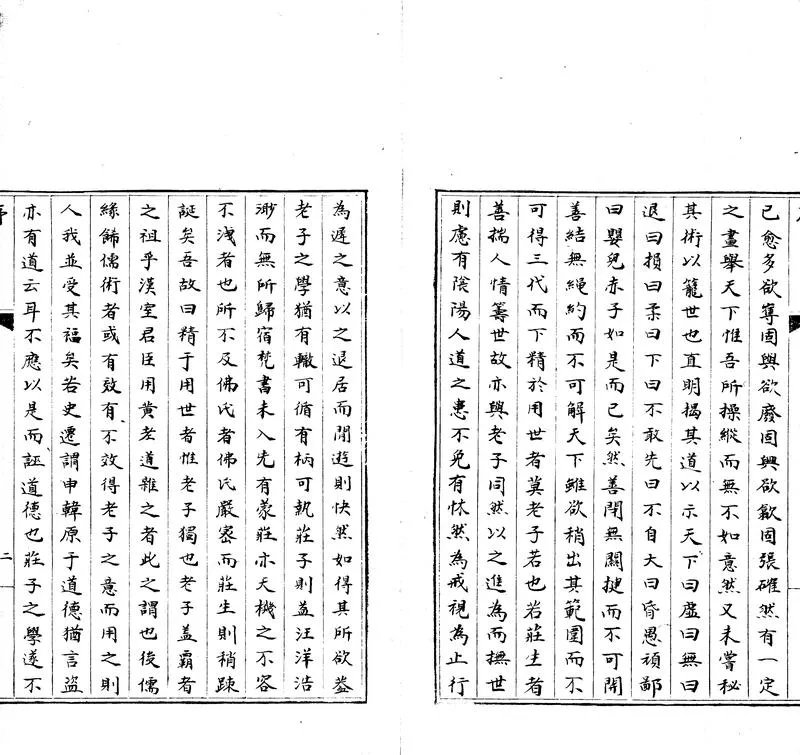 已愈多欲奪固與欲廢固興欲歙固張確然有一定
之畫舉天下惟吾所操縱而無不如意然又未嘗秘
其術以籠世也直明揭其道以示天下曰虛曰無曰
退曰損曰柔曰下曰不敢先曰不自大曰昏愚頑鄙
曰嬰兒赤子如是而已矣然善閉無關揵而不可開
善結無繩約而不可解天下雖欲稍出其範圍而不
可得三代而下精於用世者莫老子若也若莊生者
善揣人情籌世故亦與老子同然以之進為而撫世
則慮有陰陽人道之患不免有怵然為戒視為止行
為遲之意以之退居而閒遊則快然如得其所欲葢
老子之學猶有轍可循有柄可執莊子則葢汪洋浩
渺而無所歸宿梵書未入先有蒙莊亦天機之不容
不洩者也所不及佛氏者佛氏嚴密而莊生則稍踈
誕矣吾故曰精于用世者惟老子獨也老子葢霸者
之祖乎漢室君臣用黄老道雜之者此之謂也後儒
緣餙儒術者或有效有不效得老子之意而用之則
人我並受其福矣若史遷謂申韓原于道德猶言盜
亦有道云耳不應以是而誣道德也莊子之學遂不
序
二